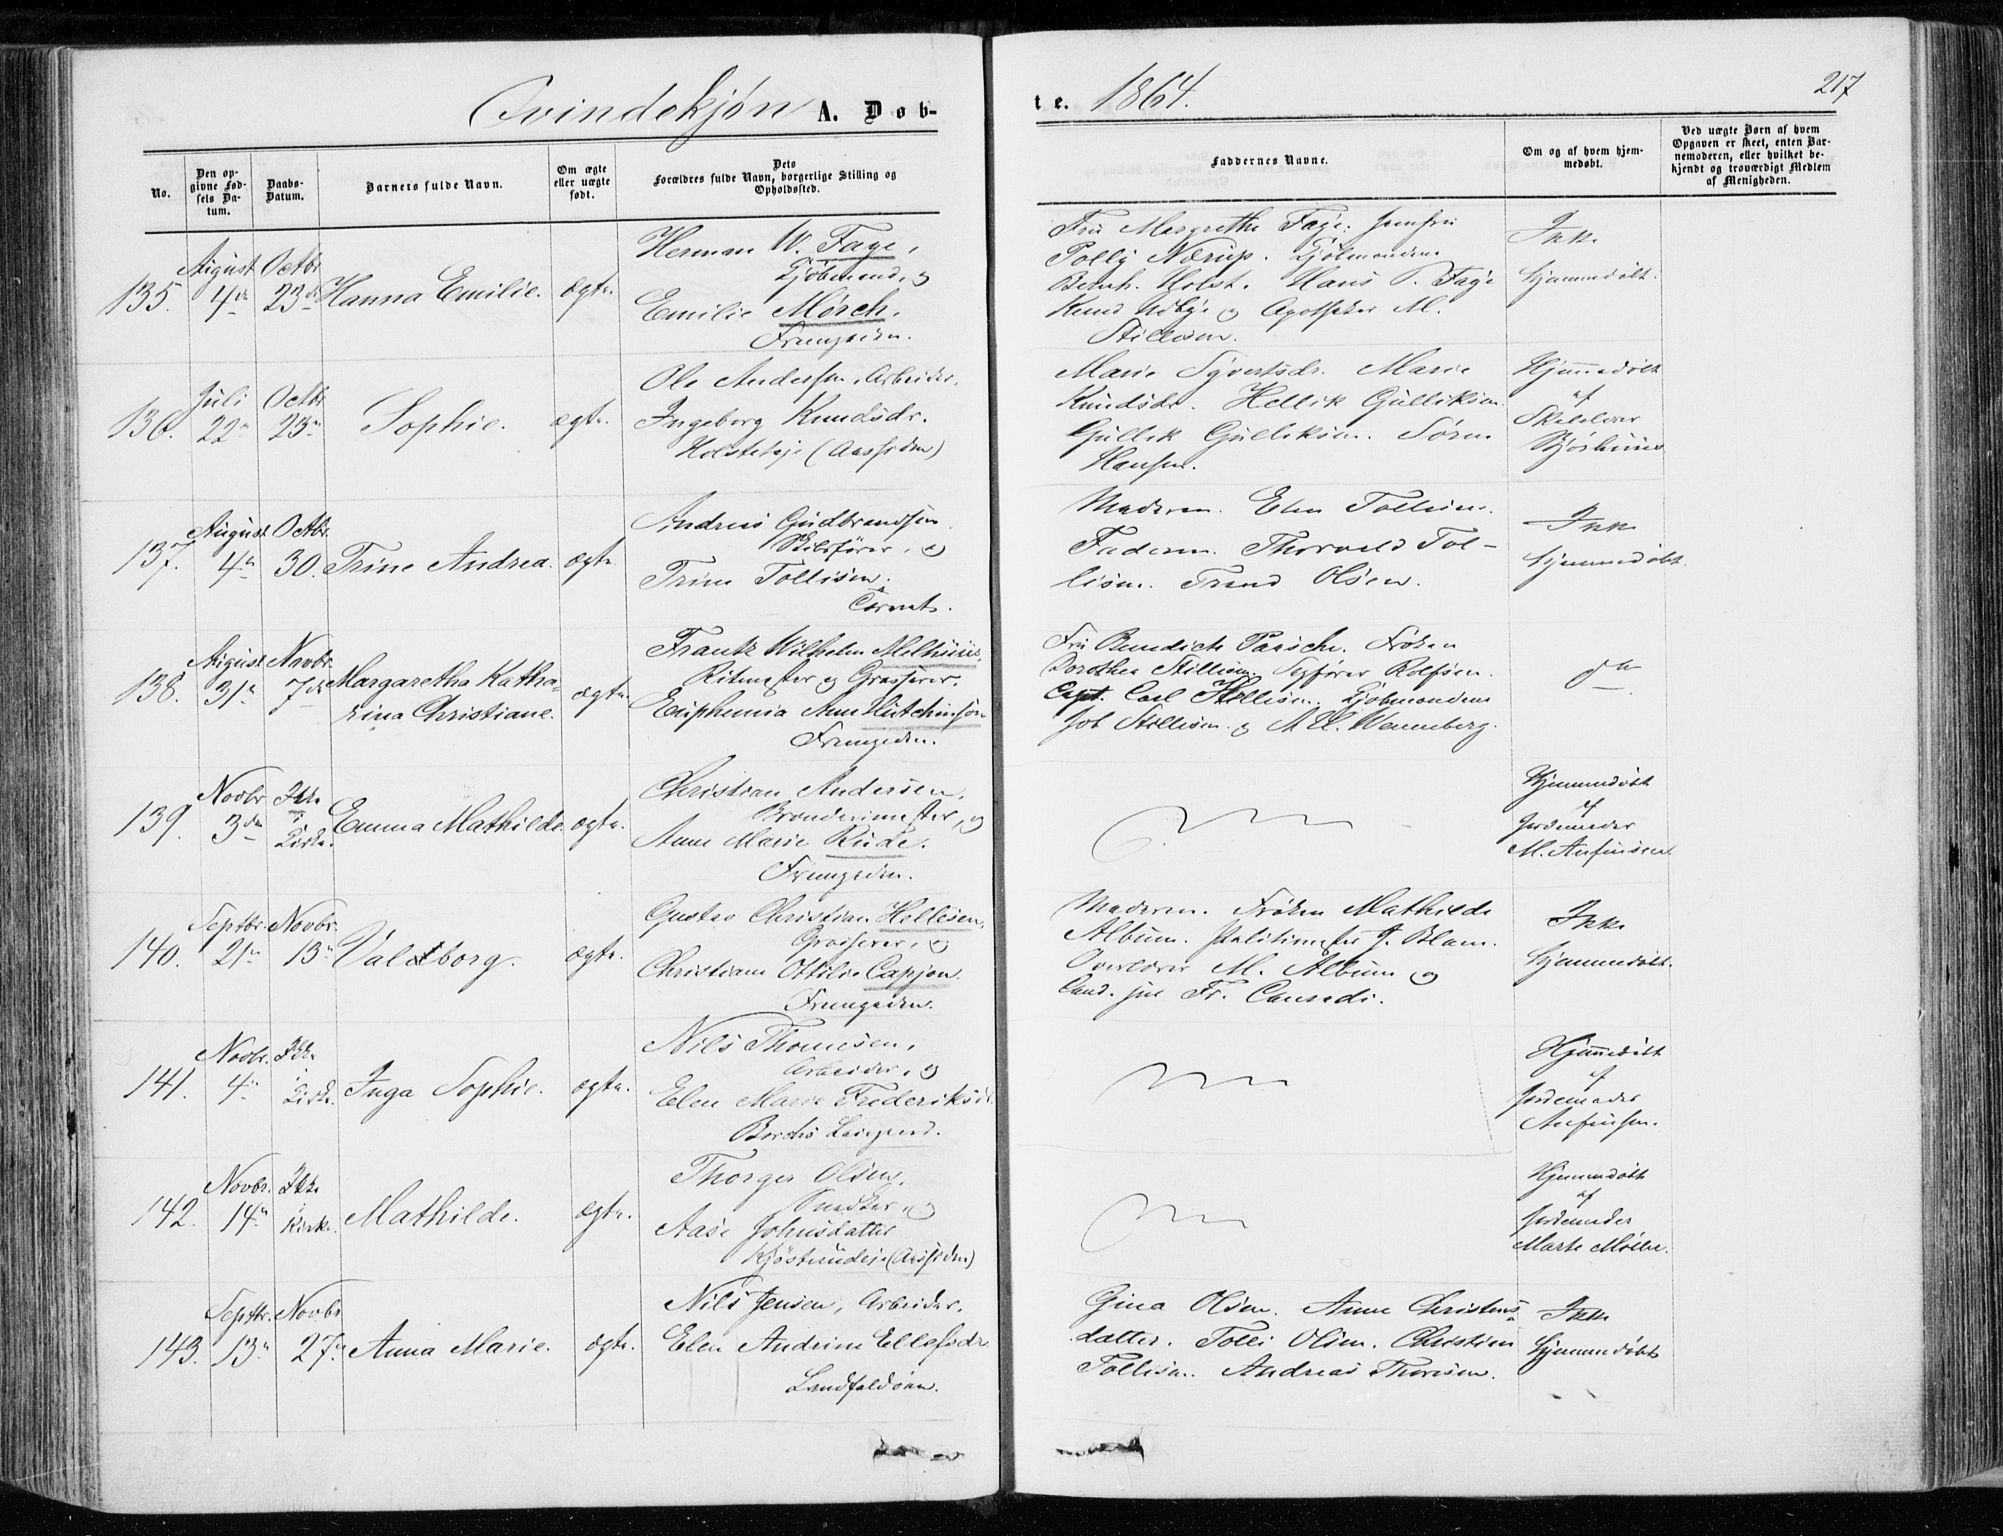 Qvindekjøn A. Døb-
te. 1864.
217
No.
Den op-
givne Fød-
sels Da-
tum.
Daabs-
Datum.
Barnets fulde Navn.
Om ægte
eller uægte
født.
Dets
Forældres fulde Navn, borgerlige Stilling og
Opholdssted.
Faddernes Navne.
Om og af hvem hjem-
medøbt.
Ved uægte Børn af hvem
Opgaven er skeet, enten Bar-
nemoderen, eller hvilket be-
kjendt og troværdigt Medlem
af Menigheden.
135. August 4de Octbr 23de Hanna Emilie. ægte.
Herman W. Faye,
Kjøbmand, og
Emilie Mørch.
Strømsøen.
Fru Margrethe Faye. Jomfru
Polly Nærup. Kjøbmændene
Bernh. Holst. Hans P. Faye
Knud Udbye og Apotheker M.
Ikke
hjemmedøbt.
136. Juli 22de Octbr 23de Sophie. ægte.
Ole Andersen, Arbeider.
Ingeborg Knudsdr.
(Aassiden)
Marie Syvertsdr. Marie
Knudsdr. Hellik Gulliksen.
Gullik Gulliksen. Søren
Hansen.
Hjemmedøbt
af
Skolelærer
137. August 4de Octbr. 30. Trine Andrea. ægte.
Andreas Gudbrandsen
og
Trine Tollisen.
Moderen. Elen Tollisen.
Faderen. Thorvald Tol-
lisen. Trond Olsen.
Ikke
hjemmedøbt.
138. August 31te Novbr. 7de Margaretha Katha-
rina Christiane. ægte.
Frantz Wilhelm Melhuus,
Ritmester og Grosserer.
Euphemia Ann Hutchinson
Fru Benedicte Paasche. Frøken
Dorothea Tollisen. Rolfsen.
Capt. Carl Kjøbmændene
og Wennberg.
do
139. Novbr 3die Ikke i Kirke. Emma Mathilde. ægte.
Christian Andersen,
og
Anne Marie Rude.
Hjemmedøbt
af
Jordemoder
M. Anfinsen.
140. Septbr. 21de Novbr. 13de Valborg. ægte.
Gustav Christian Hellesen,
Grosserer, og
Christiane Ottilie Capjon.
Moderen. Frøken Mathilde
Album. Politimester J. Blom.
Overlærer M. Album og
Cand. jur. Fr.
Ikke
hjemmedøbt.
141. Novbr. 4de Ikke i Kirke. Inga Sophie. ægte.
Nils Thomesen,
Arbeider, og
Elen Marie Frederiksdr.
Hjemmedøbt
af
Jordemoder
Anfinsen.
142. Novbr. 14de Ikke i Kirke. Mathilde. ægte.
Thorger Olsen,
Snedker, og
Aase Johnsdatter
(Aassiden)
Hjemmedøbt
af
Jordemoder
Marte
143. Septbr. 13de Novbr 27de Anna Marie. ægte.
Nils Jensen, Arbeider.
Elen Andrine Ellefsdr.
Landfaldøen.
Gina Olsen. Anne Christens-
datter. Tolli Olsen. Christian
Tollisen. Andreas Thoresen.
Ikke
hjemmedøbt